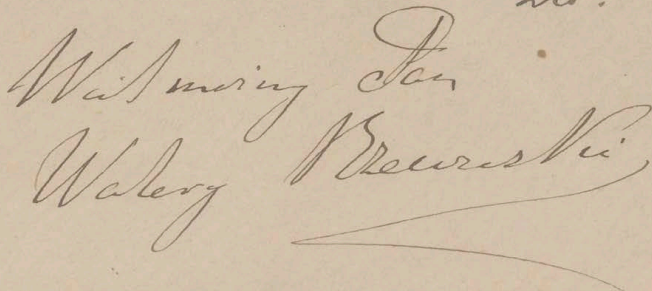 Wielmożny Pan
Walery Rzewuski